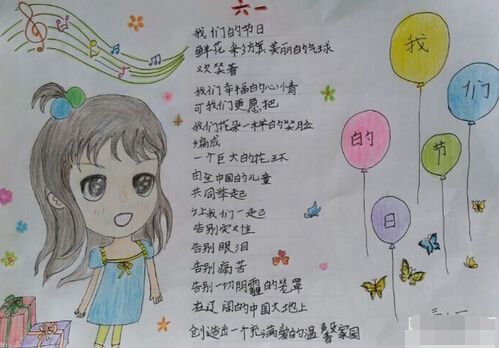 六一
我们的节日
鲜花 美丽的气球
欢笑着
我们幸福的心情
可我们更愿把
我们花朵一样的笑脸
编成
一个巨大的花环
由全中国的儿童
共同举起
让我们一起
告别
告别眼泪
告别痛苦
告别一切阴霾的笼罩
在辽阔的中国大地上
创造出一个充满的温馨家园
我
们
的
节
日
三.一